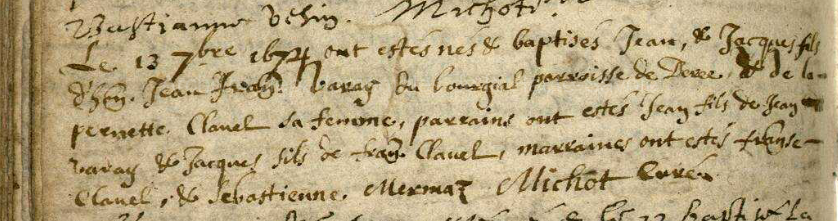 Bastianne Vehin. Michot.
Le 13 7bre 1674 ont estés nés & baptises Jean, & Jacques fils
d'hon. Jean Fran. Varay du bourgial parroisse de & de la
pernette Clavel sa femme, parrains ont estes Jean fils de Jean
Varay & Jacques fils de fran. Clavel, marraines ont estés franse
Clavel, & Sebastienne Mermaz Michot Curé